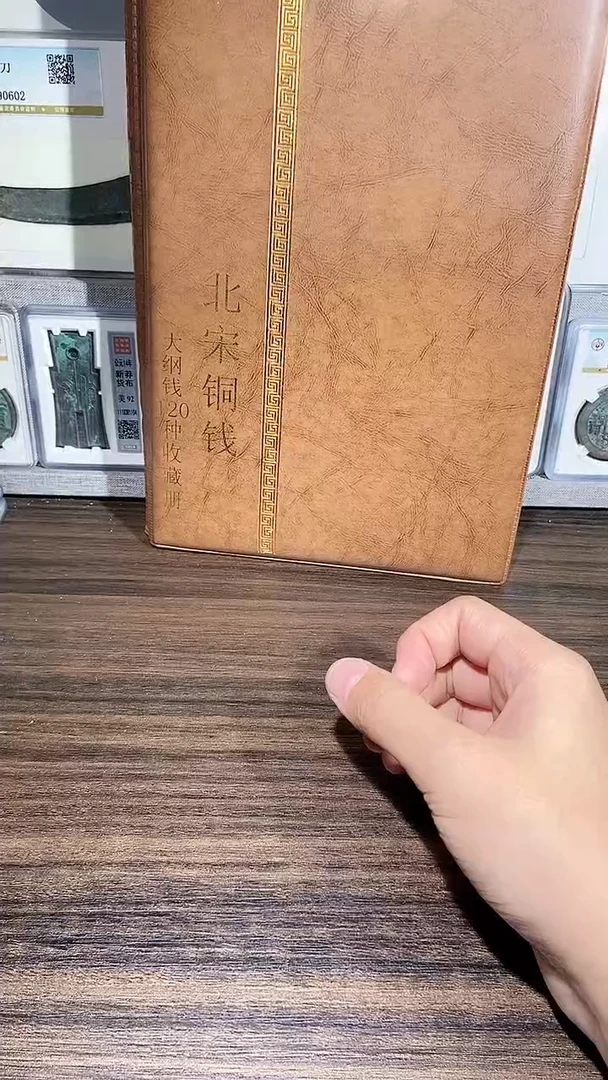 刀
00602
北宋铜钱
大纲钱120种收藏册
新莽
货布
美 92